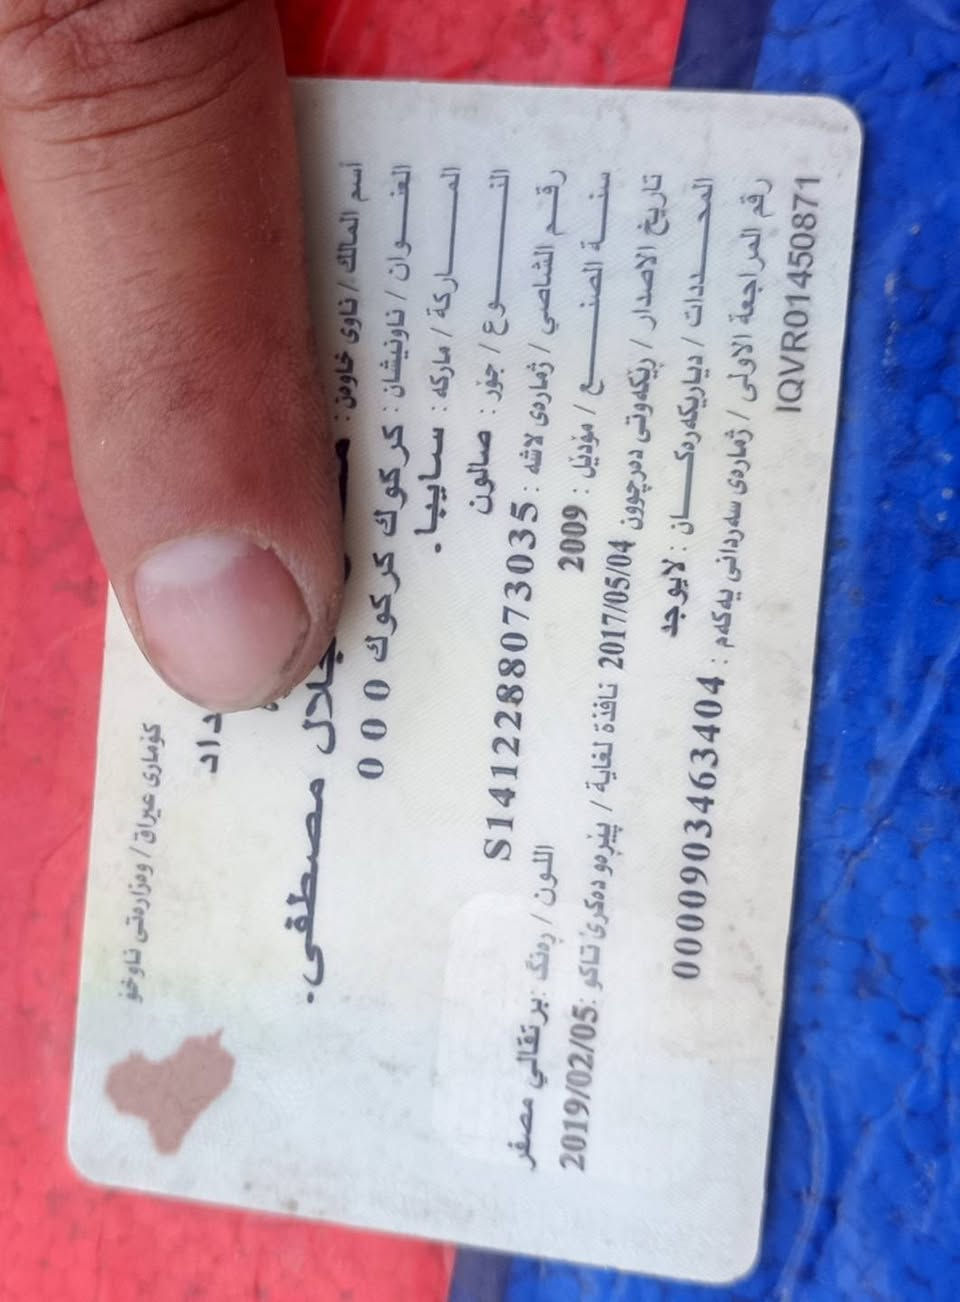 كۆماری عیراق / وەزارەتی ناوخۆ
داد
أسم المالك / ناوی خاوەن :
جلال مصطفى.
العنـــوان / ناونيشان : كركوك كركوك 0 0 0
المـــــاركة / ماركه : سايپا.
النـــــوع / جۆر : صالون
رقـــم الشاصي / ژمارەی لاشه : S1412288073035
اللون / ڕەنگ :برتقالي مصفر
سنـــة الصنـــــع / مۆدێل : 2009
تاريخ الاصدار / ڕێكەوتی دەرچوون 2017/05/04 نافذة لغاية / پێڕەو دەكرێ تاكو :2019/02/05
المحـــــددات / دیاریكەرەكـــــان : لايوجد
رقم المراجعة الاولى / ژمارەی سەردانی یەكەم : 00009034634​04
IQVR01450871